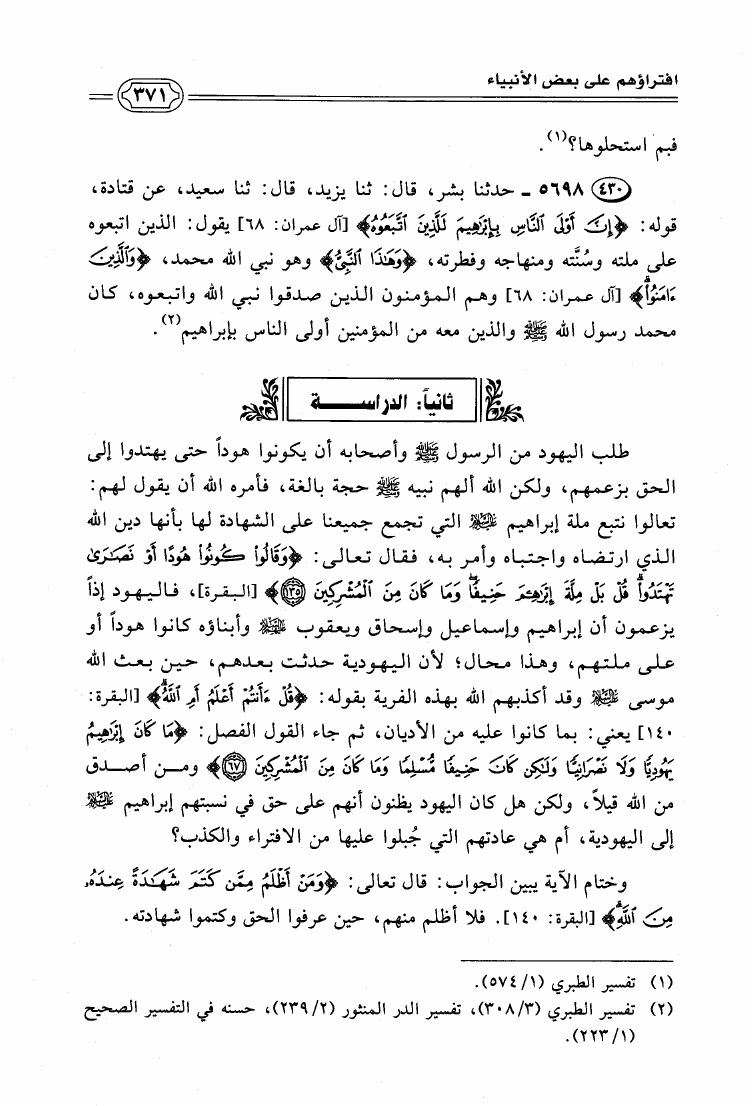 افتراؤهم على بعض الأنبياء
٣٧١
فبم استحلوها؟(١).
٤٣٠ ٥٦٩٨ ـ حدثنا بشر، قال: ثنا يزيد، قال: ثنا سعيد، عن قتادة،
قوله: ﴿إِنَّ أَوْلَى ٱلنَّاسِ بِإِبْرَٰهِيمَ لَلَّذِينَ ٱتَّبَعُوهُ﴾ [آل عمران: ٦٨] يقول: الذين اتبعوه
على ملته وسُنَّته ومنهاجه وفطرته، ﴿وَهَٰذَا ٱلنَّبِىُّ﴾ وهو نبي الله محمد، ﴿وَٱلَّذِينَ
ءَامَنُوا۟ۗ﴾ [آل عمران: ٦٨] وهم المؤمنون الذين صدقوا نبي الله واتبعوه، كان
محمد رسول الله ﷺ والذين معه من المؤمنين أولى الناس بإبراهيم(٢).
ثانياً: الدراســـة
طلب اليهود من الرسول ﷺ وأصحابه أن يكونوا هوداً حتى يهتدوا إلى
الحق بزعمهم، ولكن الله ألهم نبيه ﷺ حجة بالغة، فأمره الله أن يقول لهم:
تعالوا نتبع ملة إبراهيم عليه السلام التي تجمع جميعنا على الشهادة لها بأنها دين الله
الذي ارتضاه واجتباه وأمر به، فقال تعالى: ﴿وَقَالُوا۟ كُونُوا۟ هُودًا أَوْ نَصَٰرَىٰ
تَهْتَدُوا۟ۗ قُلْ بَلْ مِلَّةَ إِبْرَٰهِۦمَ حَنِيفًاۖ وَمَا كَانَ مِنَ ٱلْمُشْرِكِينَ ١٣٥﴾ [البقرة]، فاليهود إذاً
يزعمون أن إبراهيم وإسماعيل وإسحاق ويعقوب عليهم السلام وأبناؤه كانوا هوداً أو
على ملتهم، وهذا محال؛ لأن اليهودية حدثت بعدهم، حين بعث الله
موسى عليه السلام وقد أكذبهم الله بهذه الفرية بقوله: ﴿قُلْ ءَأَنتُمْ أَعْلَمُ أَمِ ٱللَّهُۗ﴾ [البقرة:
١٤٠] يعني: بما كانوا عليه من الأديان، ثم جاء القول الفصل: ﴿مَا كَانَ إِبْرَٰهِيمُ
يَهُودِيًّا وَلَا نَصْرَانِيًّا وَلَٰكِن كَانَ حَنِيفًا مُّسْلِمًا وَمَا كَانَ مِنَ ٱلْمُشْرِكِينَ ٦٧﴾ ومن أصدق
من الله قيلاً، ولكن هل كان اليهود يظنون أنهم على حق في نسبتهم إبراهيم عليه السلام
إلى اليهودية، أم هي عادتهم التي جُبلوا عليها من الافتراء والكذب؟
وختام الآية يبين الجواب: قال تعالى: ﴿وَمَنْ أَظْلَمُ مِمَّن كَتَمَ شَهَٰدَةً عِندَهُۥ
مِنَ ٱللَّهِۗ﴾ [البقرة: ١٤٠]. فلا أظلم منهم، حين عرفوا الحق وكتموا شهادته.
(١) تفسير الطبري (١/ ٥٧٤).
(٢) تفسير الطبري (٣٠٨/٣)، تفسير الدر المنثور (٢٣٩/٢)، حسنه في التفسير الصحيح
(١/ ٢٢٣).